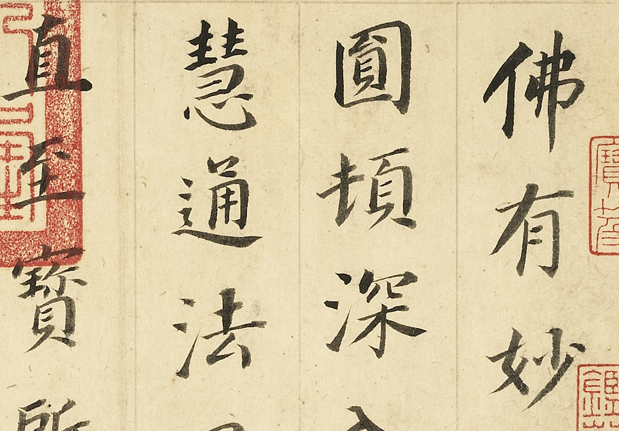 佛有妙
圓頓深入
慧通法
直至寶所